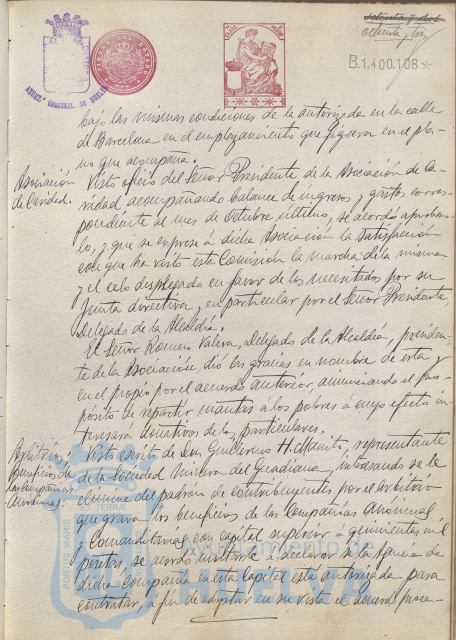 setenta y dos
ochenta y tres
B.1.400.108
AYUNT. CONSTNAL DE HUELVA
bajo las mismas condiciones de la autorizada en la calle
de Barcelona en el emplazamiento que figura en el pla-
no que acompaña.
Asociación de Caridad.
Visto oficio del Señor Presidente de la Asociación de Ca-
ridad, acompañando balance de ingresos y gastos corres-
pondiente al mes de Octubre último, se acordó aprobar-
lo, y que se exprese á dicha Asociación la satisfacción
con que ha visto esta Comisión la marcha de la misma
y el celo desplegado en favor de los necesitados por su
Junta directiva, en particular por el Señor Presidente,
Delegado de la Alcaldía.
El Señor Romero Valera, Delegado de la Alcaldía, presiden-
te de la Asociación, dió las gracias en nombre de esta y
en el propio por el acuerdo anterior, anunciando el pro-
pósito de repartir mantas á los pobres á cuyo efecto in-
teresará donativos de los particulares.
Arbitrios,
beneficios de
las Compañías
Anónimas.
Visto escrito de Don Guillermo H. Manito, representante
de la Sociedad Minera del Guadiana, interesando se le
elimine del padrón de contribuyentes por el arbitrio
que grava los beneficios de las Compañías Anónimas y
Comanditarias con capital superior a quinientas mil
pesetas, se acordó invitarle á declarar si la agencia de
dicha Compañía en esta Capital está autorizada para
contratar, á fin de adoptar en su vista el acuerdo proce-
PORTUS MARIS ET TERRAE
Ayuntamiento de